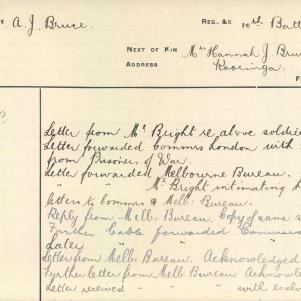 A. J. Bruce. REG. &c 10th Batt
NEXT OF KIN Mrs Hannah J. Bru
ADDRESS Kooringa.
Letter from Mr Bright re above soldie
Letter forwarded Commrs London with
from Prisoners of War.
Letter forwarded Melbourne Bureau.
" " Mr Bright intimating h
letters to Commrs & Melb. Bureau.
Reply from Melb. Bureau. Copy of same s
Further Cable forwarded Commrs
Later
Letter from Melb. Bureau. Acknowledged
Further letter from Melb. Bureau Acknowl
Letter received " with enclo